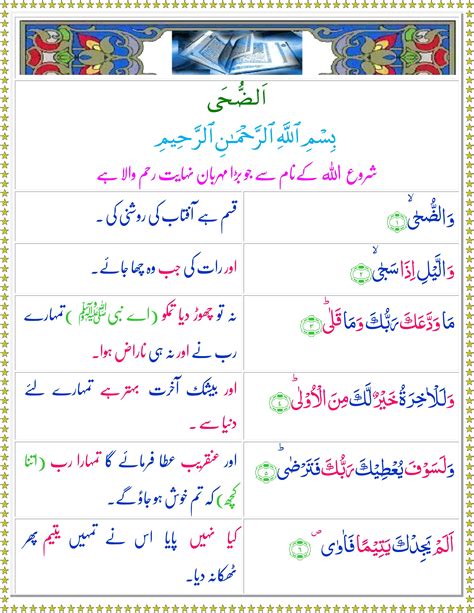 اَلضُّحٰى
بِسْمِ اللّٰهِ الرَّحْمٰنِ الرَّحِيْمِ
شروع اللہ کے نام سے جو بڑا مہربان نہایت رحم والا ہے
وَالضُّحٰىۙ ۝۱
قسم ہے آفتاب کی روشنی کی ۔
وَالَّيْلِ اِذَا سَجٰىۙ ۝۲
اور رات کی جب وہ چھا جائے۔
مَا وَدَّعَكَ رَبُّكَ وَمَا قَلٰىؕ ۝۳
نہ تو چھوڑ دیا تمکو (اے نبی ﷺ) تمہارے
رب نے اور نہ ہی ناراض ہوا۔
وَلَلْاٰخِرَةُ خَيْرٌ لَّكَ مِنَ الْاُوْلٰىؕ ۝۴
اور بیشک آخرت بہتر ہے تمہارے لئے
دنیا سے ۔
وَلَسَوْفَ يُعْطِيْكَ رَبُّكَ فَتَرْضٰىؕ ۝۵
اور عنقریب عطا فرمائے گا تمہارا رب (اتنا
کچھ) کہ تم خوش ہو جاؤ گے۔
اَلَمْ يَجِدْكَ يَتِيْمًا فَاٰوٰى ۝۶
کیا نہیں پایا اس نے تمہیں یتیم پھر
ٹھکانہ دیا۔